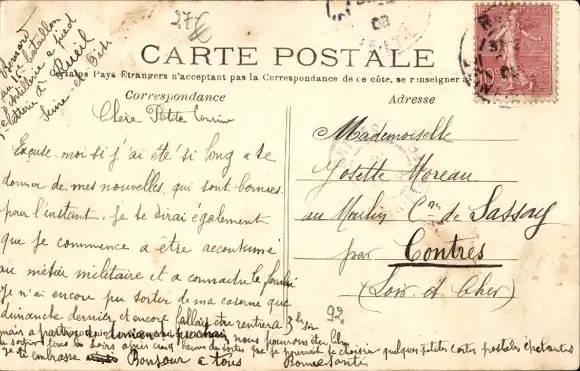 27 €
CARTE POSTALE
Certains Pays Étrangers n'acceptant pas la Correspondance de ce côte, se renseigner à
Correspondance
Adresse
au 15e bataillon
d'artillerie à pied
à Rueil
Seine et
Chère Petite
Excuse-moi si j'ai été si long à te
donner de mes nouvelles, qui sont bonnes
pour l'instant. Je te dirai également
que je commence a être accoutumé
au métier militaire et a connaitre le
Je n'ai encore pu sortir de ma caserne que
dimanche dernier et encore fallait être rentrer a
mais a partir de nous pourrons
sortir tous les soirs après cinq heures que je pourrait te choisir quelques petites cartes postales épatantes
Je t'embrasse Bonjour a tous Bonne santé
Mademoiselle
Josette Moreau
au Moulin Cne de Sassay
par Contres
(Loir et Cher)
92